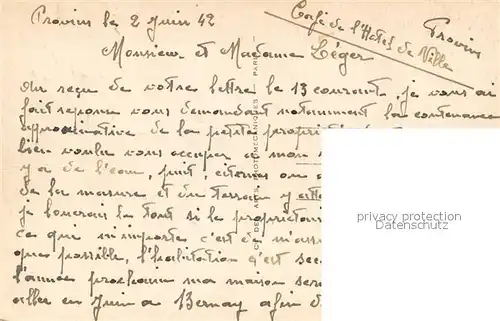 Provins le 2 Juin 42
Café de l'Hotel de Ville
Provins
Monsieur et Madame Léger
Au reçu de votre lettre le 13 courant, je vous ai
fait reponse vous demandant notamment la contenance
approximative de la petite propriété
bien voulu vous occuper a mon
y a de l'eau, puit, citernes ou
de la masure et du terrain y
je louerais le tout si le propriétaire
ce que m'importe c'est de m'
que possible, l'habitation c'est
l'année prochain ma maison sera
aller en Juin a Bernay afin d
privacy protection
Datenschutz